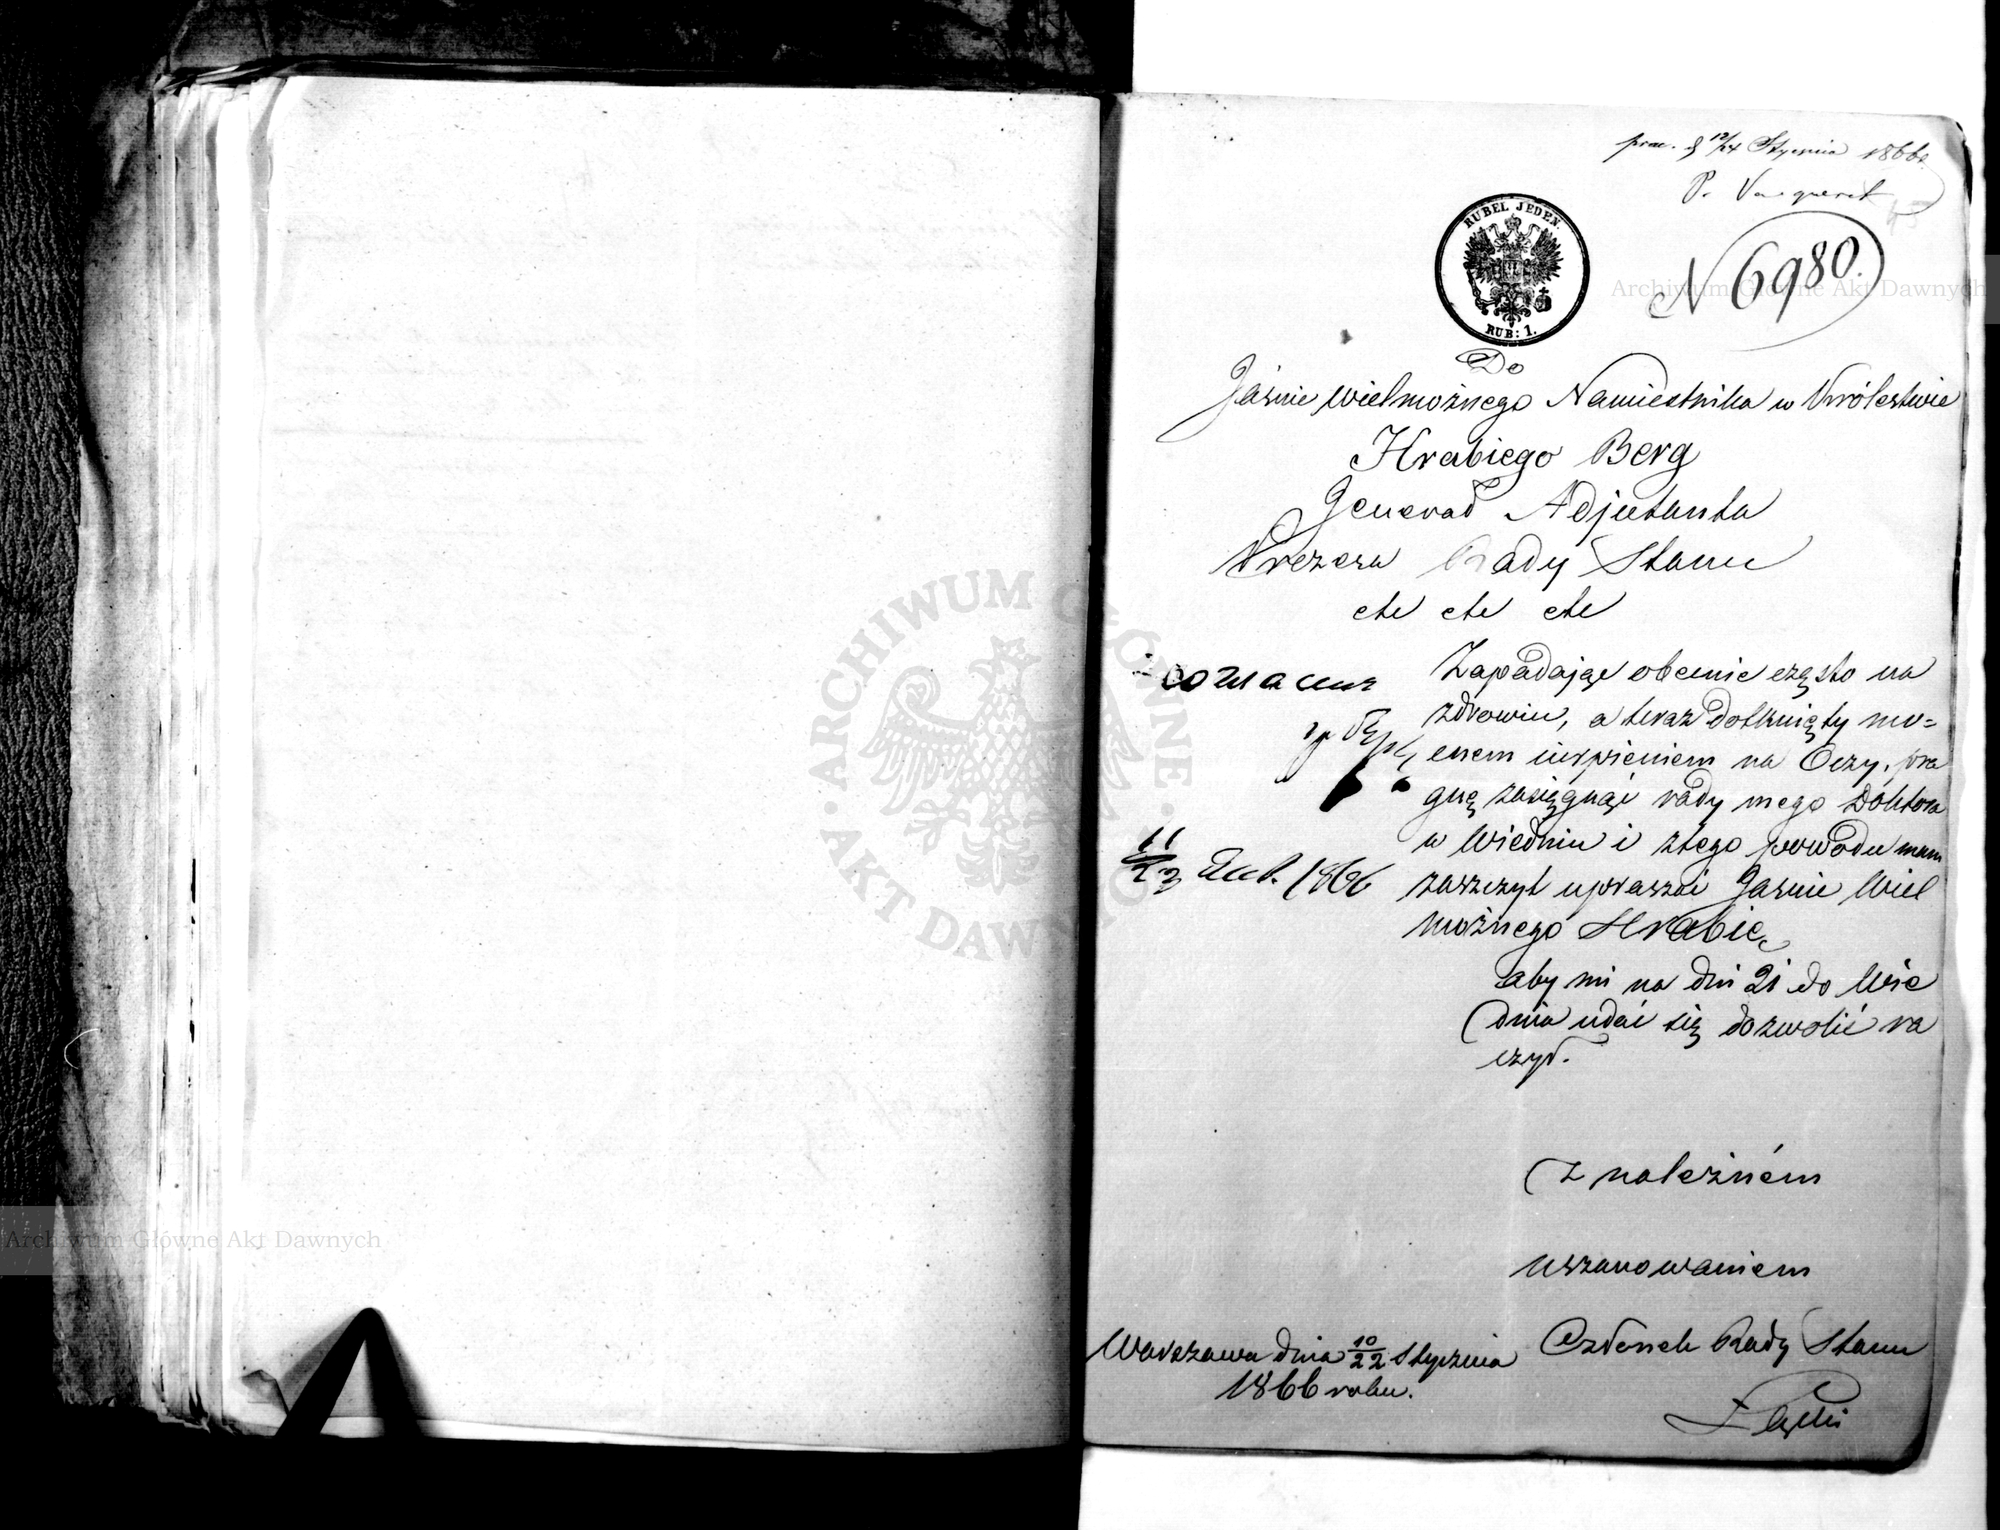 12/24 Stycznia 1866
RUBEL JEDEN.
RUB: 1.
N 6980.
Do
Jaśnie Wielmożnego Namiestnika w Królestwie
Hrabiego Berg
Generał Adjutanta
Prezesa Rady Stanu
etc etc etc
Zapadając obecnie często na
zdrowiu, a teraz dotknięty mo=
cnem cierpieniem na Oczy, pra
gnę zasięgnąć rady mego Doktora
w Wiedniu i z tego powodu mam
zaszczyt upraszać Jaśnie Wiel
możnego Hrabię,
aby mi na dni 21 do Wie
dnia udać się dozwolić ra
czył.
11/23 1866
Z należném
uszanowaniem
Członek Rady Stanu
Warszawa dnia 10/22 Stycznia
1866 roku.
ARCHIWUM GŁÓWNE AKT DAWNYCH
Archiwum Główne Akt Dawnych
Archiwum Główne Akt Dawnych